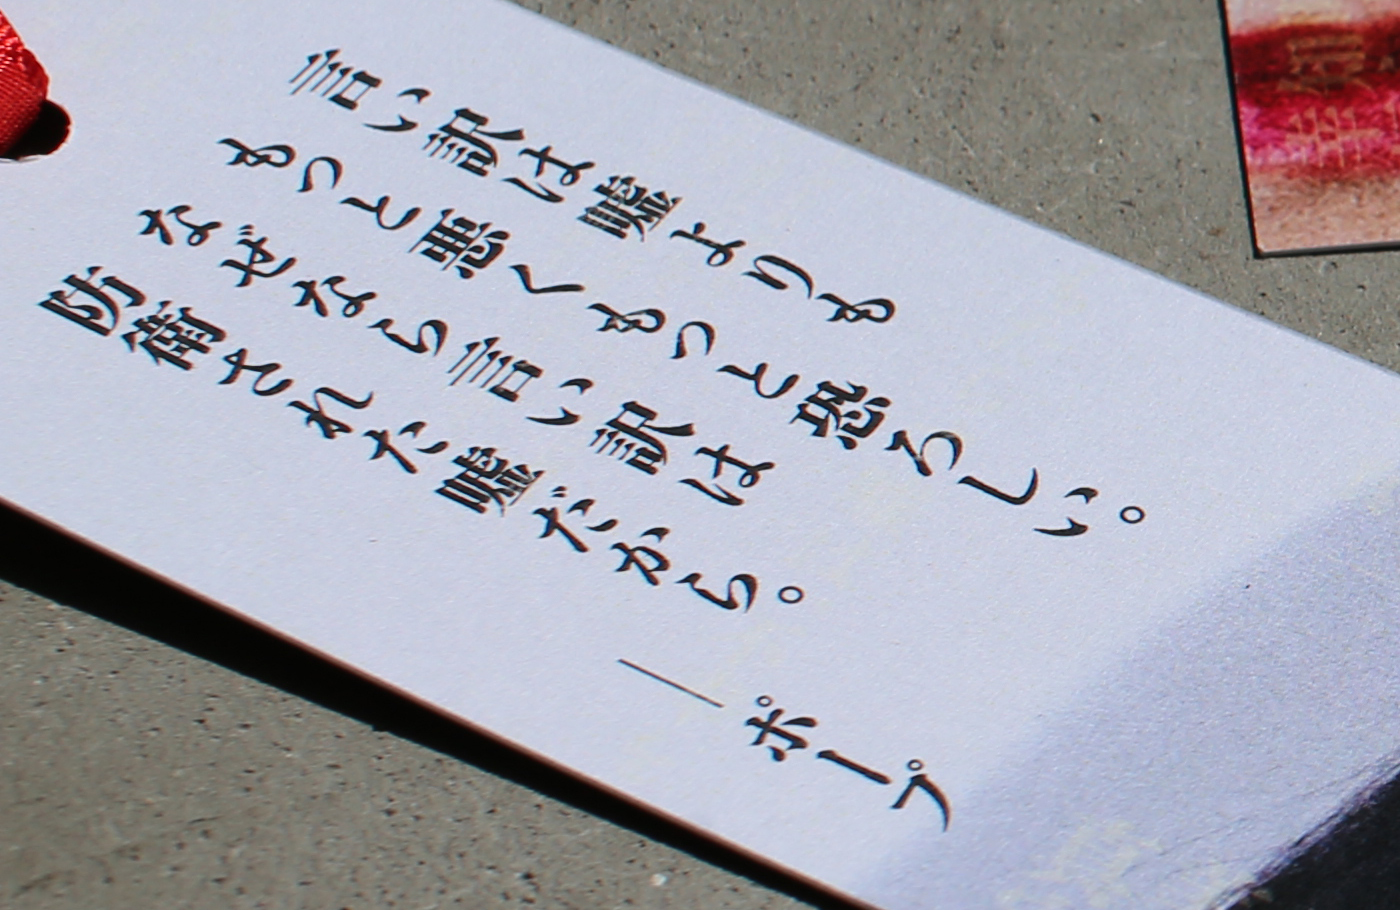 言い訳は嘘よりも
もっと悪くもっと恐ろしい。
なぜなら言い訳は
防衛された嘘だから。
—ポープ